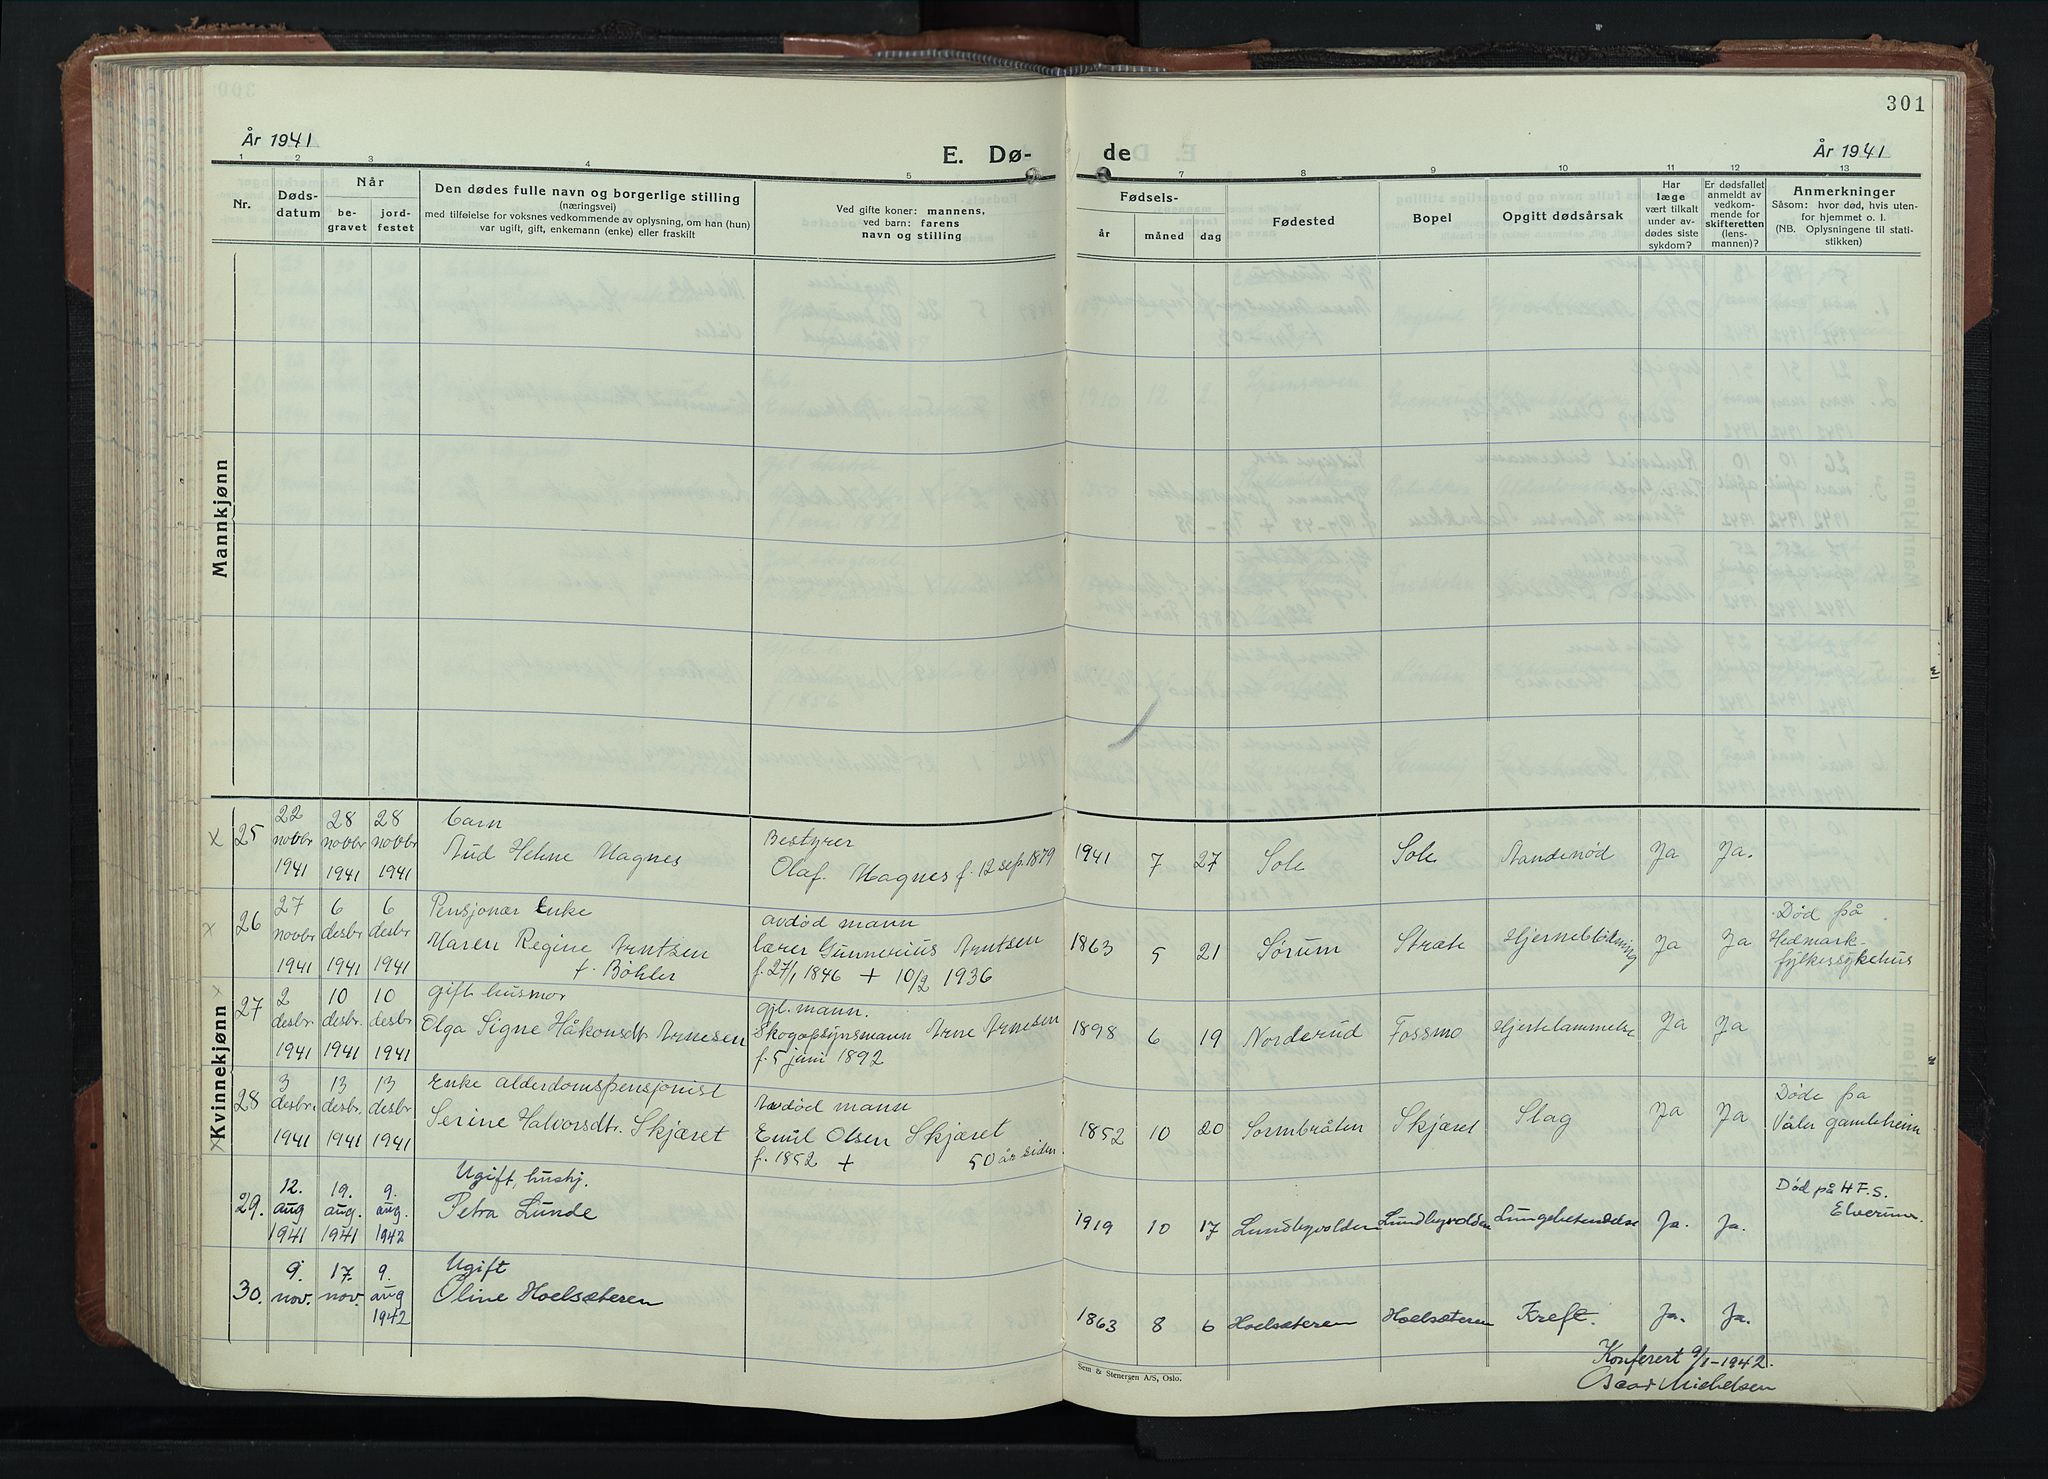 301
År 1941
E. Dø-
de
År 1941
1 2 3 4 5 7 8 9 10 11 12 13
Nr.
Døds-
datum
Når
be-
gravet
jord-
festet
Den dødes fulle navn og borgerlige stilling
(næringsvei)
med tilføielse for voksnes vedkommende av oplysning, om han (hun)
var ugift, gift, enkemann (enke) eller fraskilt
Ved gifte koner: mannens,
ved barn: farens
navn og stilling
Fødsels-
år måned dag
Fødested
Bopel
Opgitt dødsårsak
Har
læge
vært tilkalt
under av-
dødes siste
sykdom?
Er dødsfallet
anmeldt av
vedkom-
mende for
skifteretten
(lens-
mannen)?
Anmerkninger
Såsom: hvor død, hvis uten-
for hjemmet o. l.
(NB. Oplysningene til stati-
stikken)
Mannkjønn
Kvinnekjønn
25
22
novbr
1941
28
novbr
1941
28
novbr
1941
barn
Aud Helene Hagnes
Bestyrer
Olaf Hagnes f. 12 sep. 1879
1941 7 27 Sole Sole Aandenød Ja Ja.
26
27
novbr
1941
6
desbr
1941
6
desbr
1941
Pensjonær Enke
Maren Regine Arntsen
f. Bøhler
avdød mann
lærer Gunnerius Arntsen
f. 27/1 1846 + 10/2 1936
1863 5 21 Sørum Stræte Hjerneblødning Ja Ja
Død på
Hedmark-
fylkessykehus
27
2
desbr
1941
10
desbr
1941
10
desbr
1941
gift husmor
Olga Signe Håkonsdt Arnesen
gjl. mann.
Skogopsynsmann Arne Arnesen
f. 5 juni 1892
1898 6 19 Norderud Fossmo Hjertelammelse Ja Ja
28
3
desbr.
1941
13
desbr.
1941
13
desbr
1941
Enke alderdomspensjonist
Serine Halvorsdtr. Skjæret
Avdød mann
Emil Olsen Skjæret
f. 1852 + 50 år siden.
1852 10 20 Sormbråten Skjæret Slag Ja Ja
Døde på
Våler gamleheim
29.
12.
aug
1941
19.
aug.
1941
9.
aug.
1942
Ugift, hushj.
Petra Lunde
1919 10 17 Lundbyvolden Lundbyvolden Lungebetendelse Ja. Ja.
Død på H.F.S.
Elverum.
30.
9.
nov.
17.
nov.
9.
aug
1942
Ugift
Oline Hoelsæteren
1863 8 6 Hoelsæteren Hoelsæteren Kreft. Ja. Ja.
Sem & Stenersen A/S, Oslo.
Konferert 9/1-1942.
Oscar Michelsen